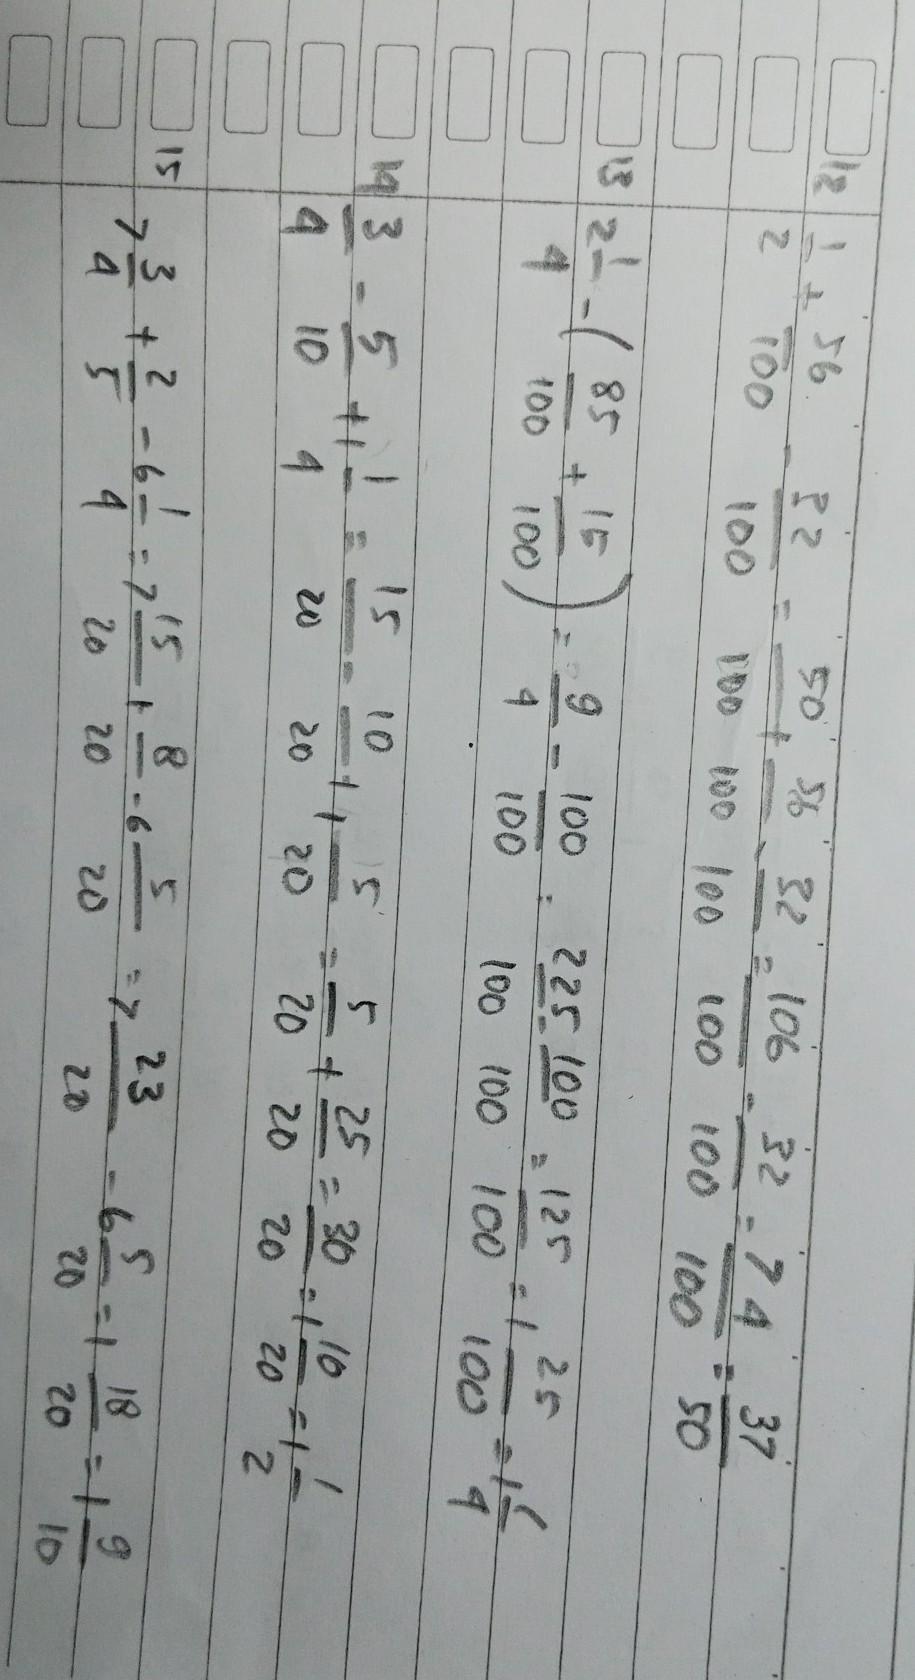 12 1/2 + 56/100 - 32/100 = 50/100 + 56/100 - 32/100 = 106/100 - 32/100 = 74/100 = 37/50
13 2 1/4 - (85/100 + 15/100) = 9/4 - 100/100 = 225/100 - 100/100 = 125/100 = 1 25/100 = 1 1/4
14 3/4 - 5/10 + 1 1/4 = 15/20 - 10/20 + 1 5/20 = 5/20 + 25/20 = 30/20 = 1 10/20 = 1 1/2
15 7 3/4 + 2/5 - 6 1/4 = 7 15/20 + 8/20 - 6 5/20 = 7 23/20 - 6 5/20 = 1 18/20 = 1 9/10